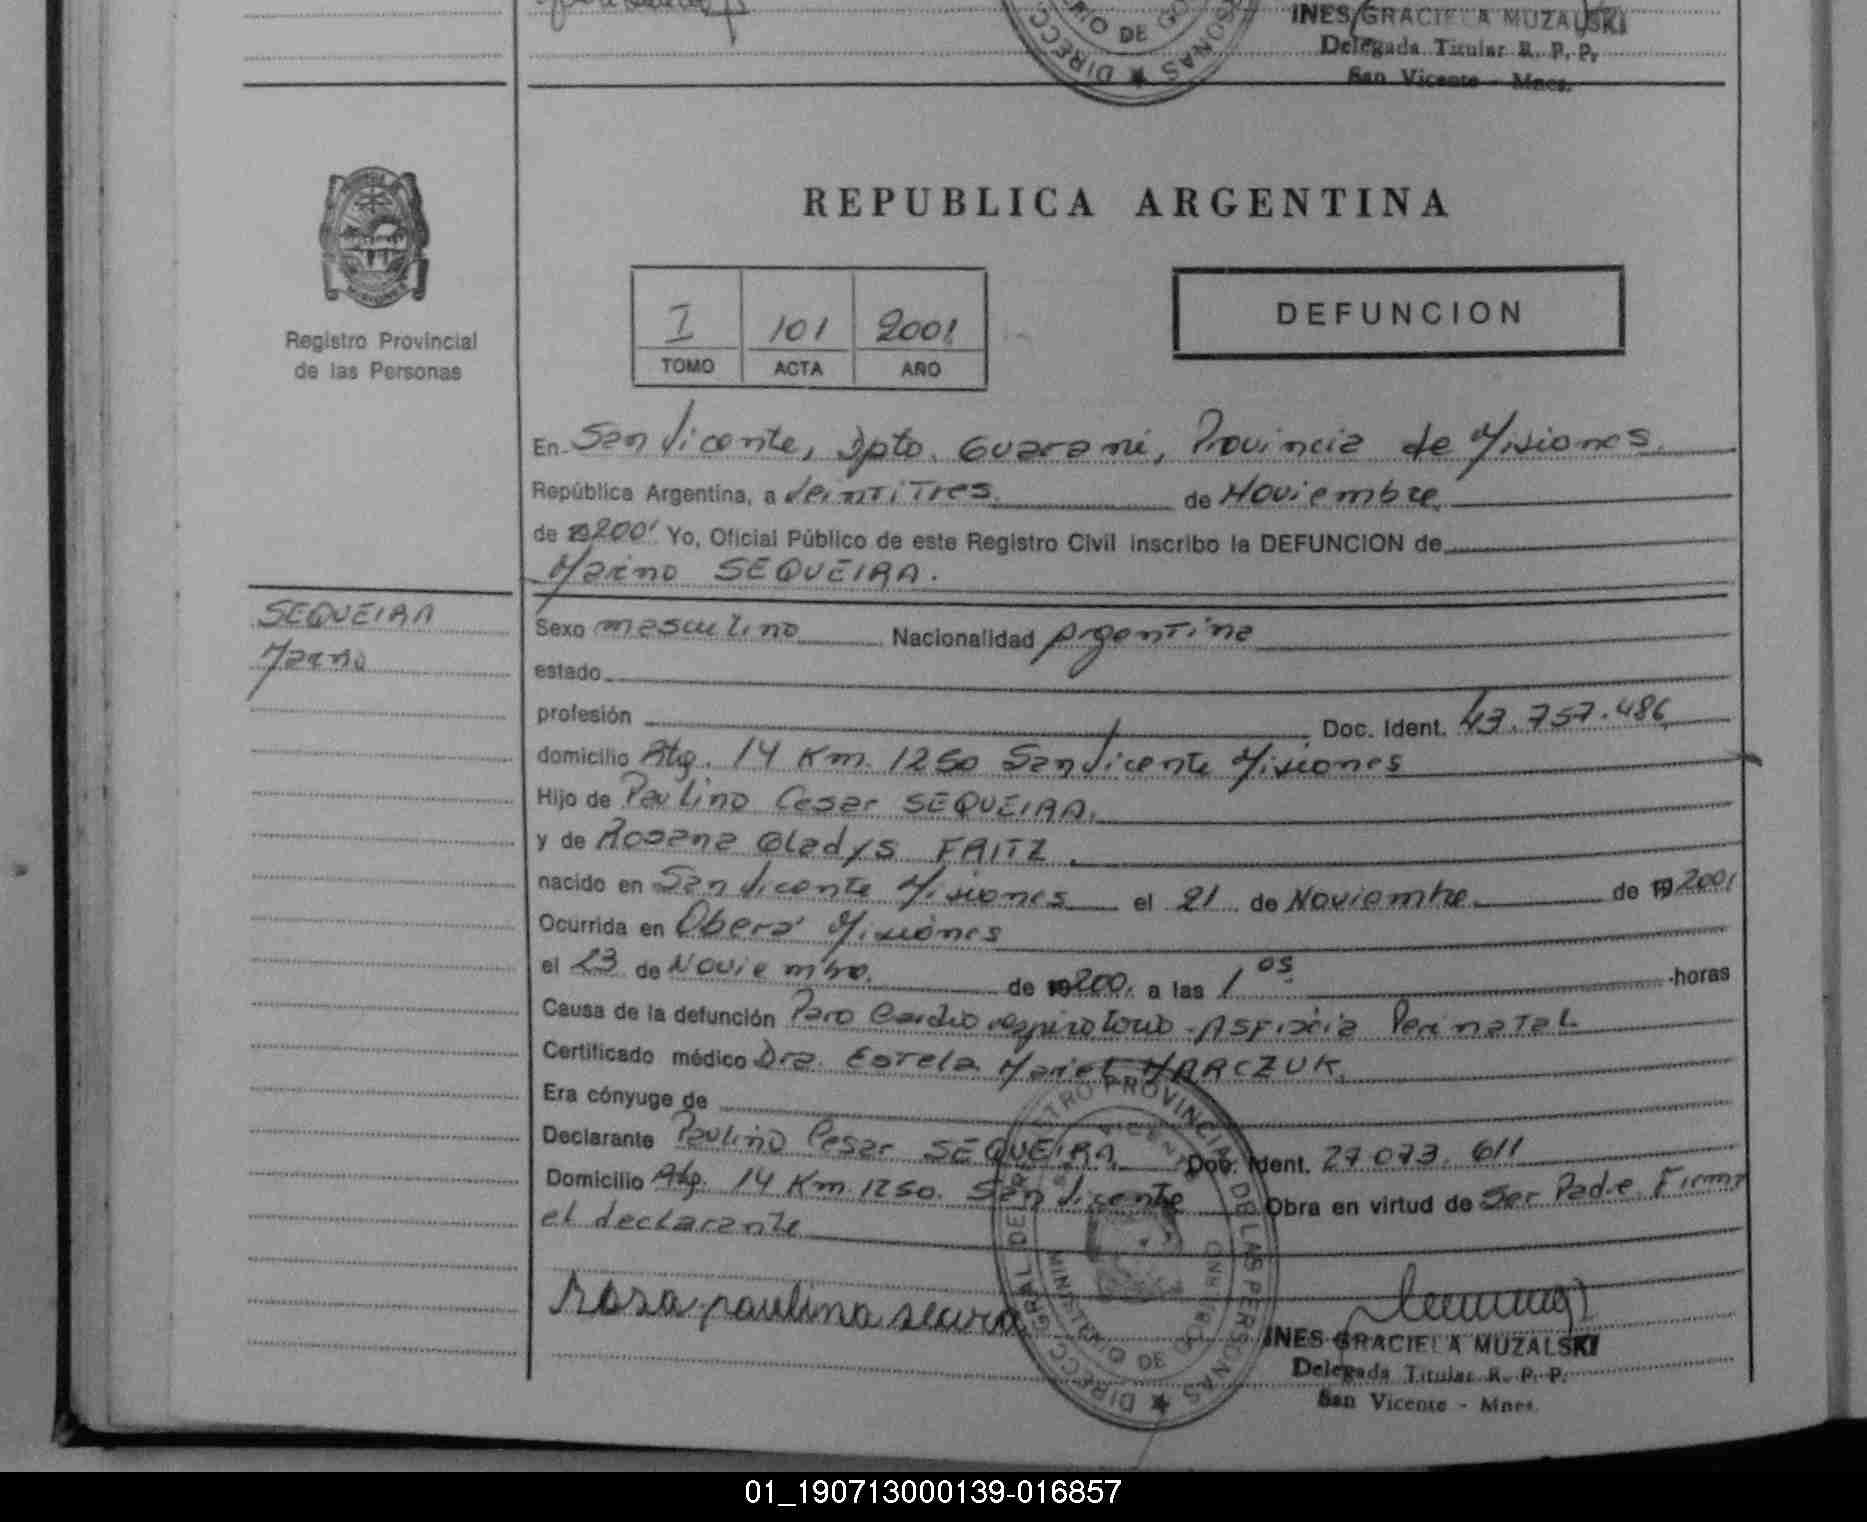 INES GRACIELA MUZALSKI
Delegada Titular R. P. P.
San Vicente - Mnes.
REPUBLICA ARGENTINA
Registro Provincial
de las Personas
I 101 2001
TOMO ACTA AÑO
DEFUNCION
En San Vicente, Dpto. Guaraní, Provincia de Misiones.
República Argentina, a Veintitres de Noviembre
de 192001 Yo, Oficial Público de este Registro Civil inscribo la DEFUNCION de
Marino SEQUEIRA.
SEQUEIRA
Marino
Sexo masculino Nacionalidad Argentina
estado
profesión Doc. Ident. 43.757.486
domicilio Rta. 14 Km. 1250 San Vicente Misiones
Hijo de Paulino Cesar SEQUEIRA.
y de Rosana Gladys FRITZ.
nacido en San Vicente Misiones el 21 de Noviembre de 192001
Ocurrida en Oberá Misiones
el 23 de Noviembre. de 192001 a las 1 05 horas
Causa de la defunción Paro Cardio respiratorio - Asfixia Perinatal
Certificado médico Dra. Estela Mariel MARCZUK.
Era cónyuge de
Declarante Paulino Cesar SEQUEIRA Doc. Ident. 27 073. 611
Domicilio Rta. 14 Km. 1250. San Vicente Obra en virtud de Ser Padre Firma
el declarante
DIRECC. GRAL. DE REGISTRO PROVINCIAL DE LAS PERSONAS
MINISTERIO DE GOBIERNO
INES GRACIELA MUZALSKI
Delegada Titular R. P. P.
San Vicente - Mnes.
01_190713000139-016857